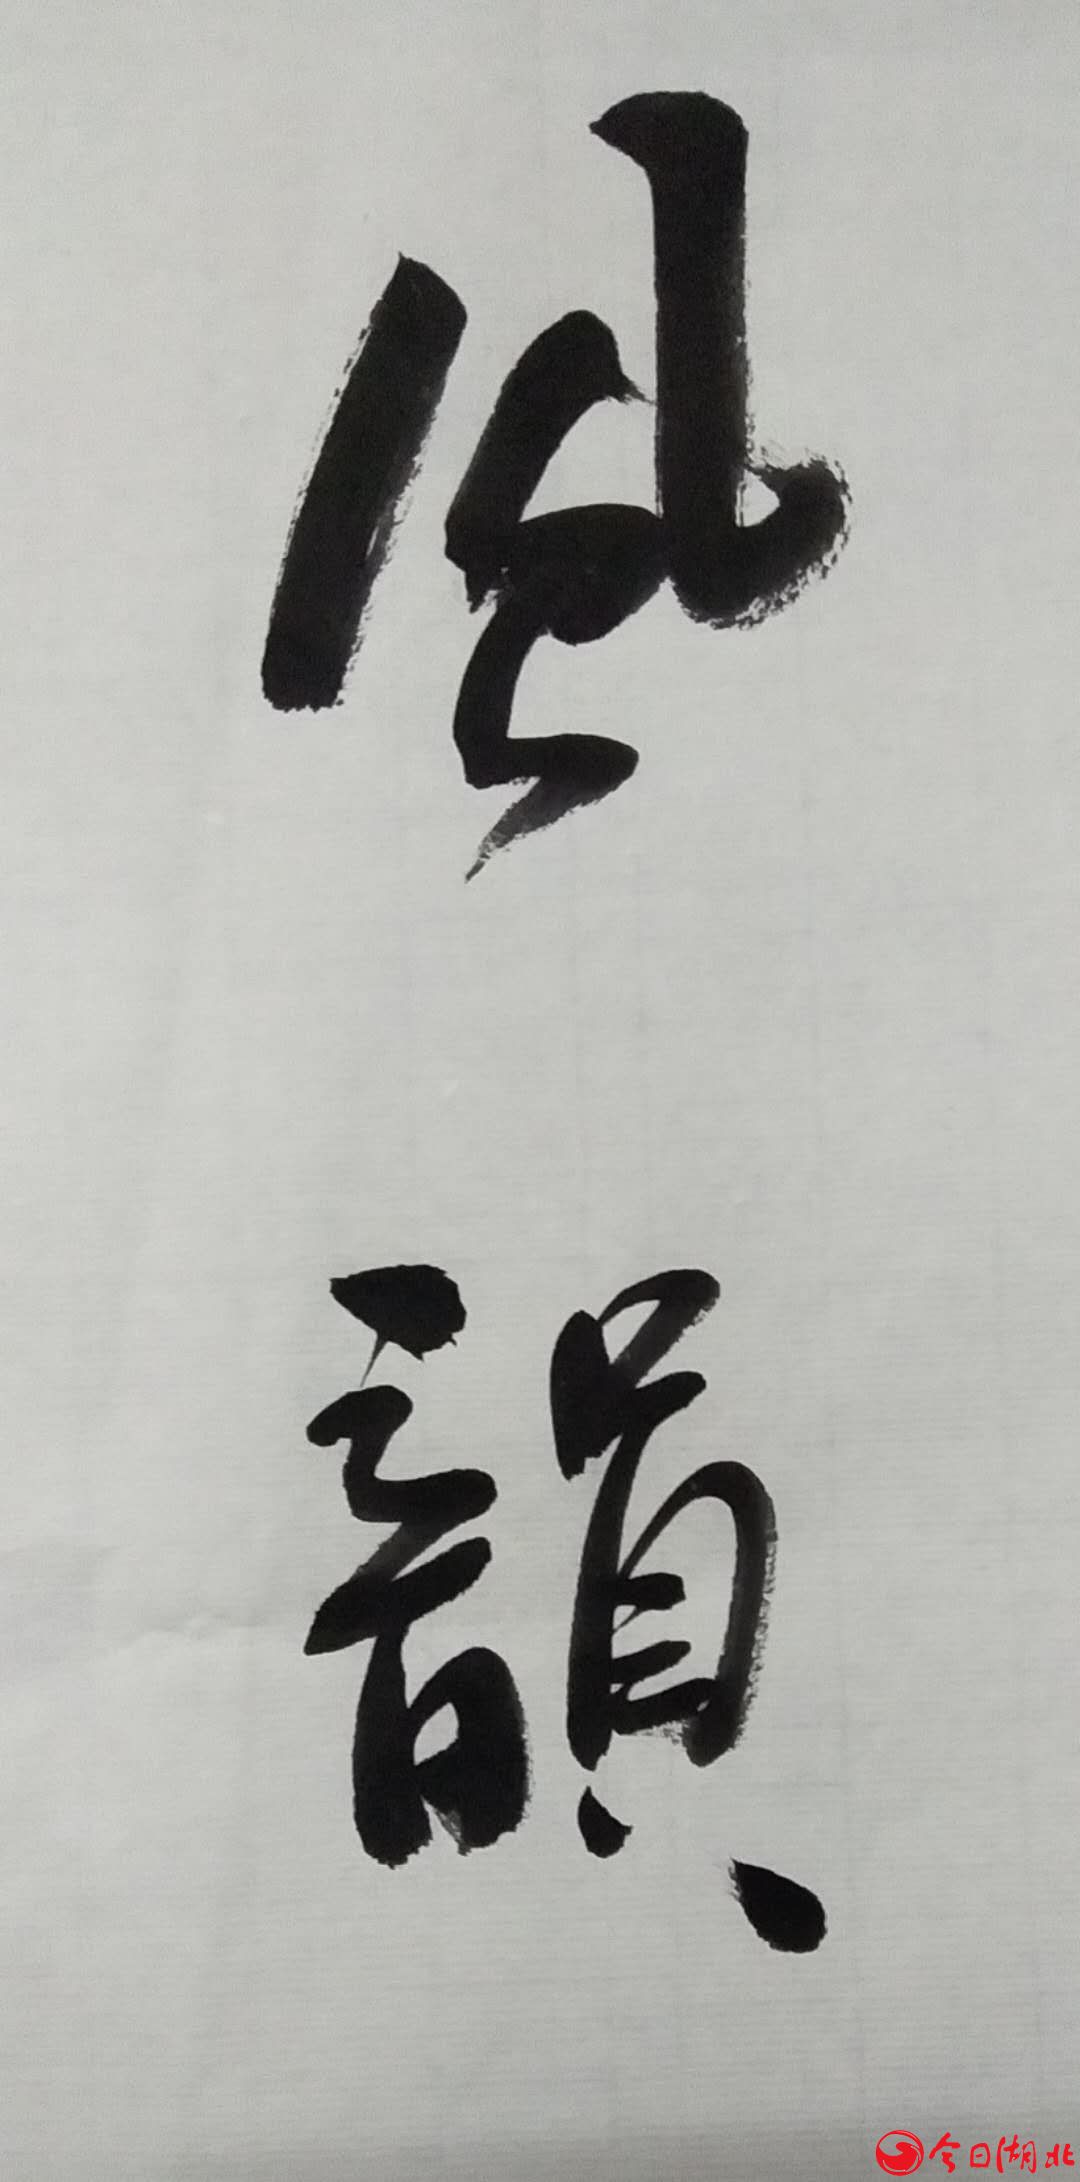 风
韻
今日湖北